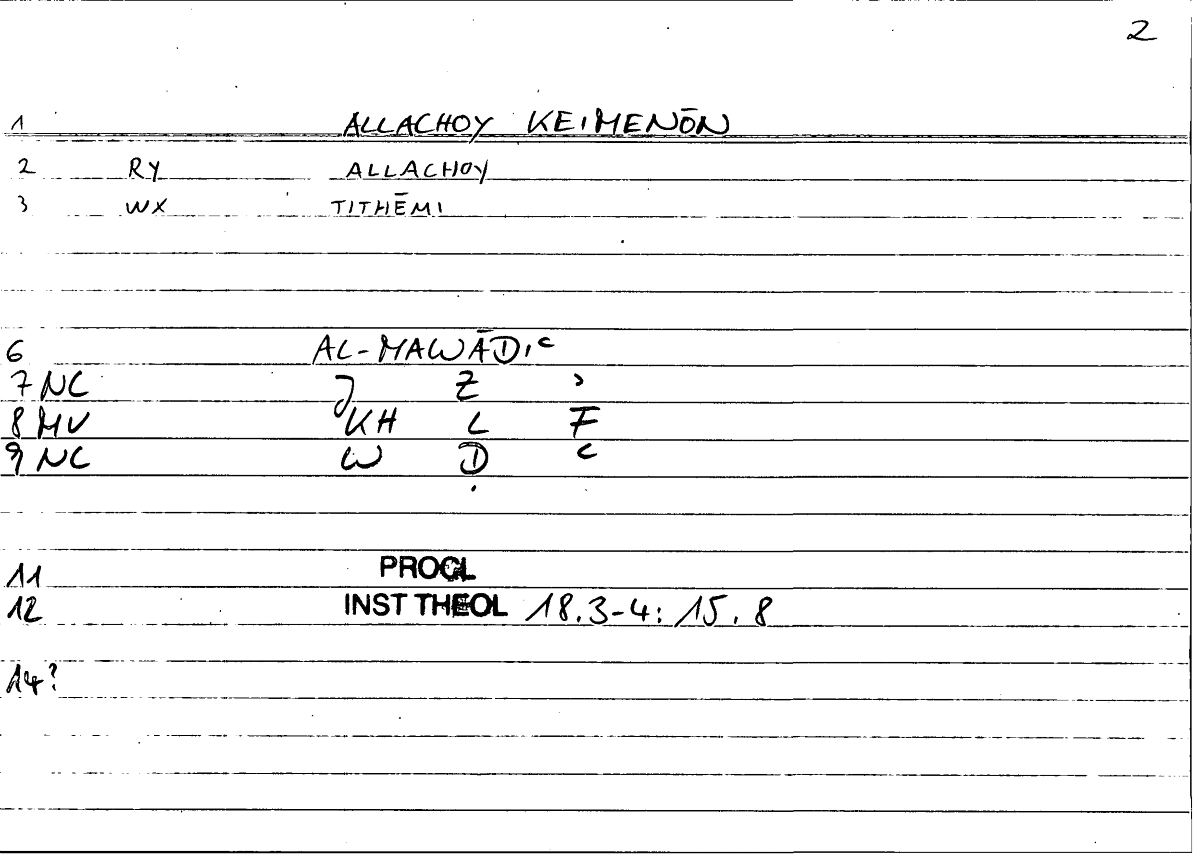 2
1 ALLACHOY KEIMENŌN
2 RY ALLACHOY
3 WX TITHĒMI
6 AL-MAWĀḌIʿ
7 NC J Z ʾ
8 MV KH L F
9 NC W Ḍ ʿ
11 PROCL
12 INST THEOL 18.3-4: 15.8
14?